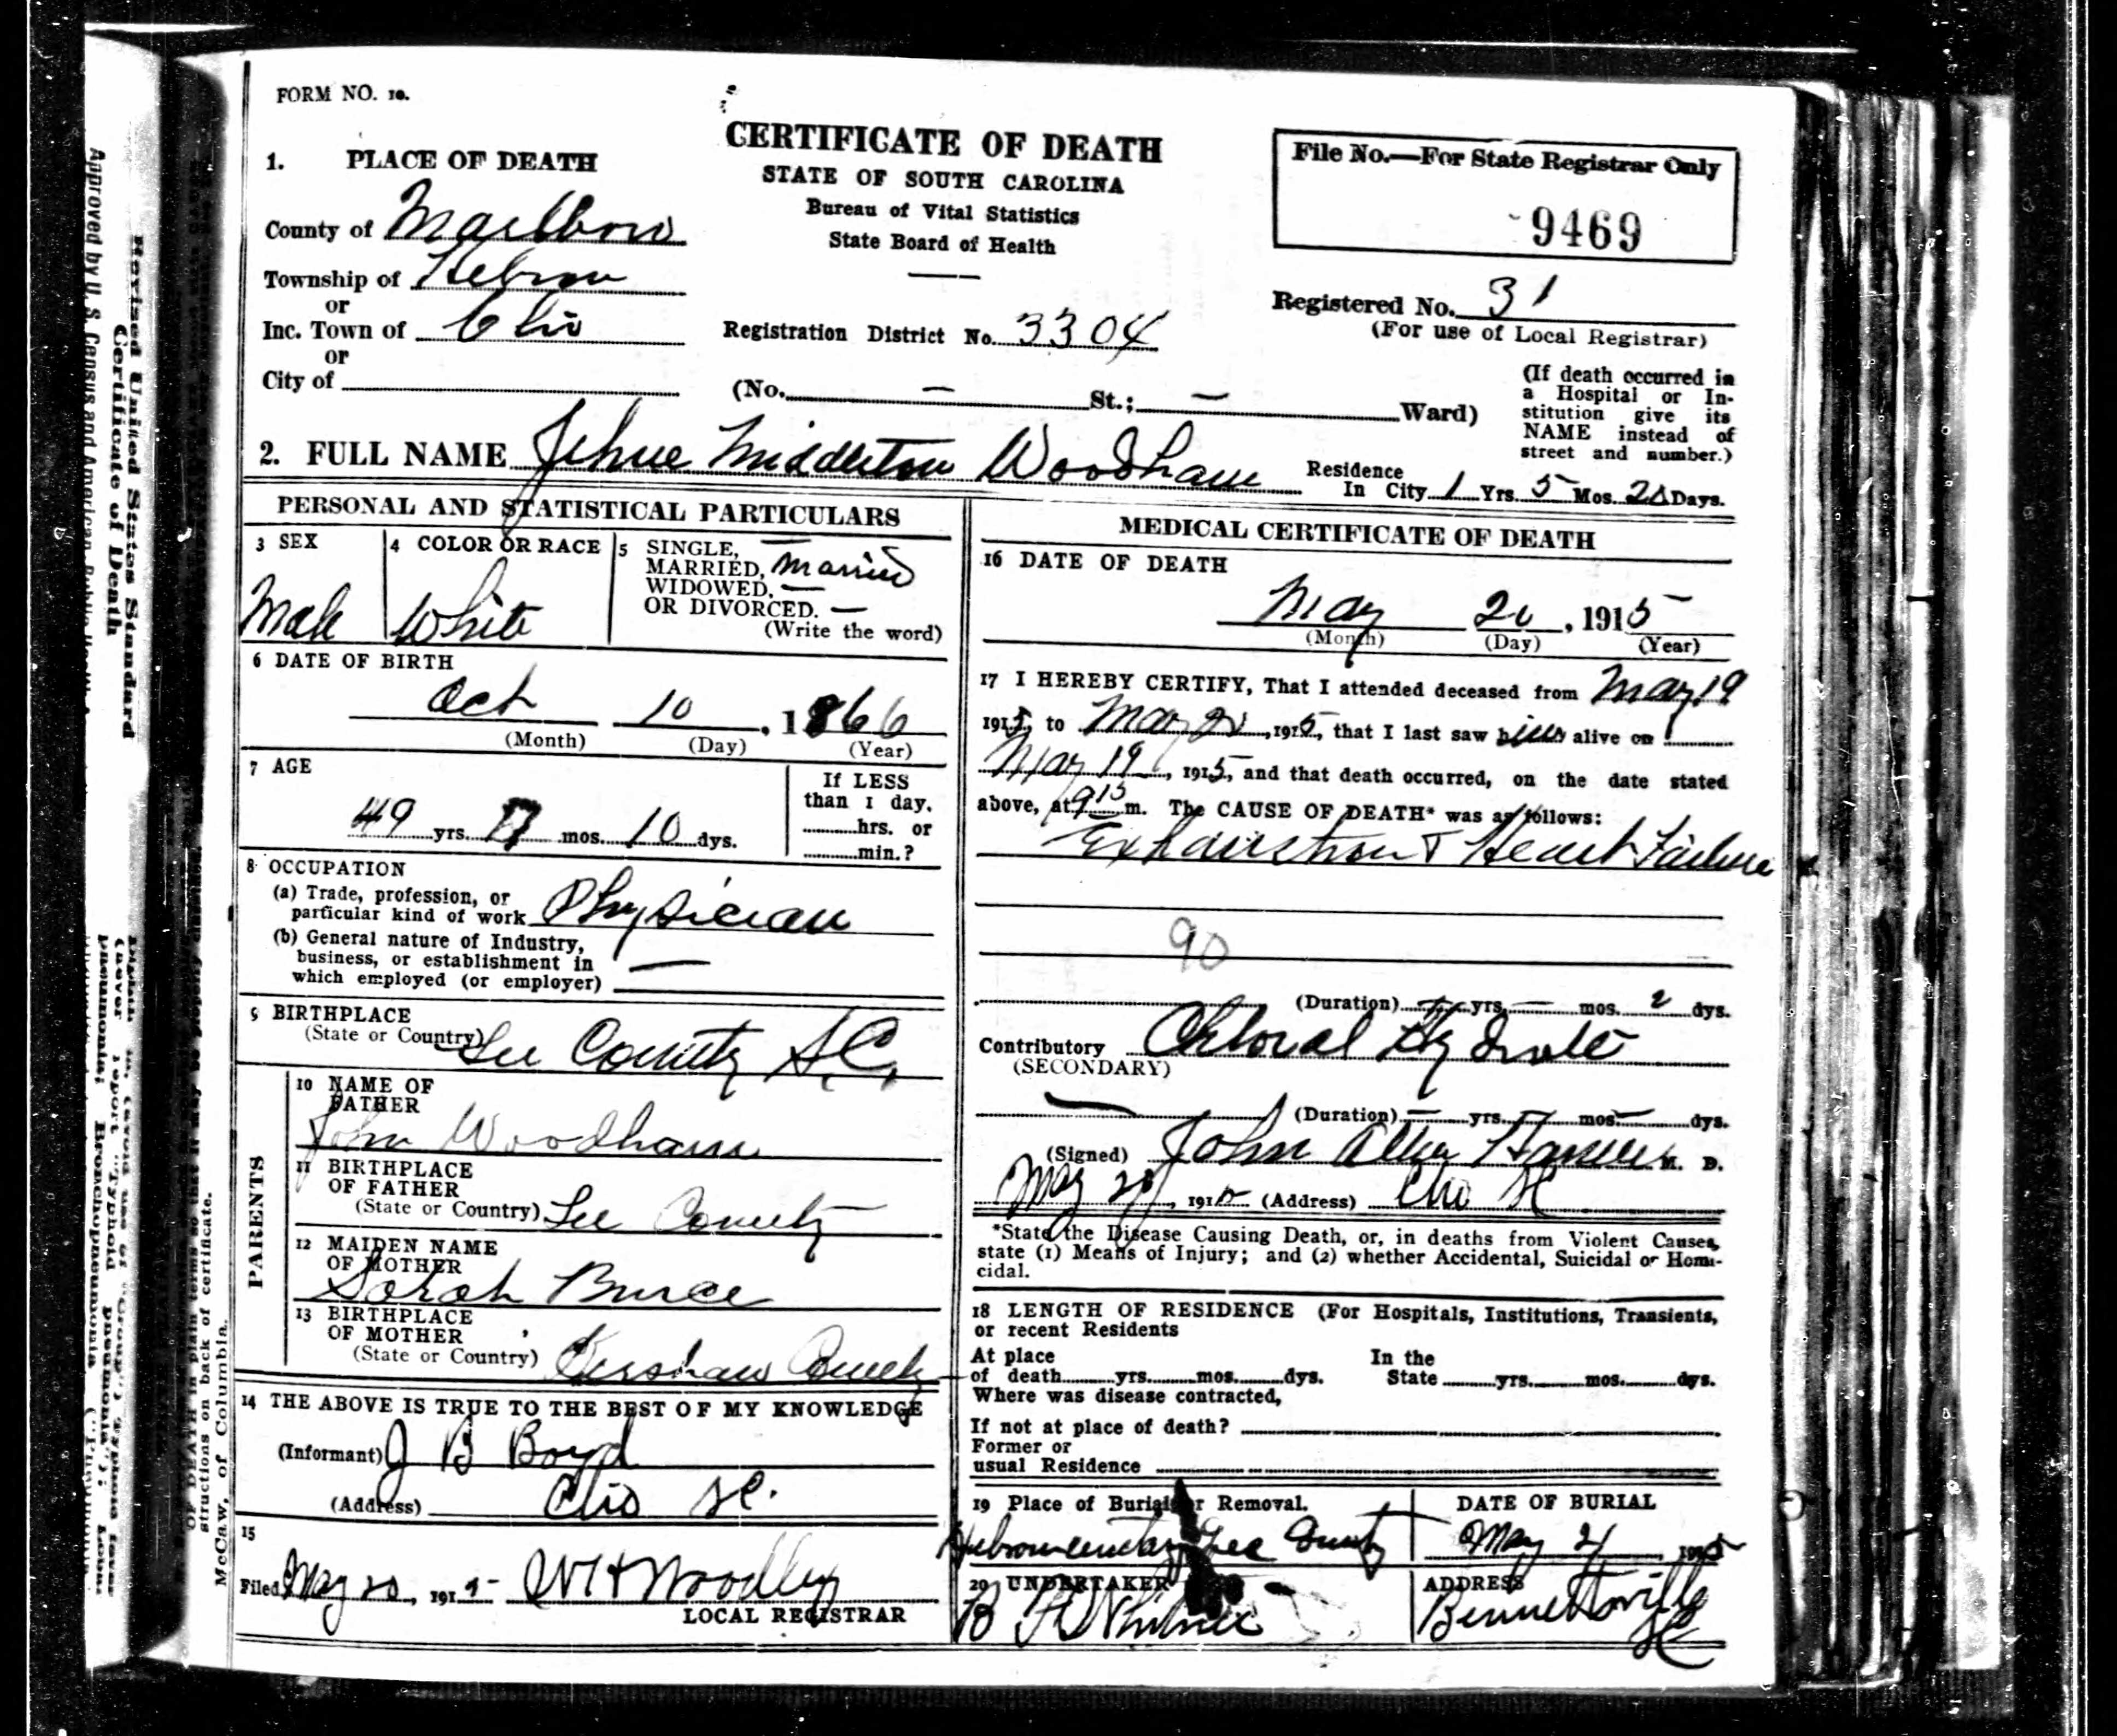 FORM NO. 10.
CERTIFICATE OF DEATH
STATE OF SOUTH CAROLINA
Bureau of Vital Statistics
State Board of Health
File No.—For State Registrar Only
9469
1. PLACE OF DEATH
County of Marlboro
Township of Hebron
or
Inc. Town of Clio
or
City of
Registration District No. 3304
Registered No. 31
(For use of Local Registrar)
(No. — St.; — Ward)
(If death occurred in
a Hospital or In-
stitution give its
NAME instead of
street and number.)
2. FULL NAME Jehue Middleton Woodham
Residence
In City 1 Yrs. 5 Mos. 20 Days.
PERSONAL AND STATISTICAL PARTICULARS
3 SEX
Male
4 COLOR OR RACE
White
5 SINGLE,
MARRIED, Married
WIDOWED, —
OR DIVORCED. —
(Write the word)
6 DATE OF BIRTH
Oct 10, 1866
(Month) (Day) (Year)
7 AGE
49 yrs. mos. 10 dys.
If LESS
than 1 day,
hrs. or
min.?
8 OCCUPATION
(a) Trade, profession, or
particular kind of work Physician
(b) General nature of Industry,
business, or establishment in
which employed (or employer) —
9 BIRTHPLACE
(State or Country) Lee County S.C.
PARENTS
10 NAME OF
FATHER
John Woodham
11 BIRTHPLACE
OF FATHER
(State or Country) Lee County
12 MAIDEN NAME
OF MOTHER
Sarah
13 BIRTHPLACE
OF MOTHER
(State or Country) Kershaw County
14 THE ABOVE IS TRUE TO THE BEST OF MY KNOWLEDGE
(Informant) J B Boyd
(Address) Clio SC.
15
Filed May 20, 1915 Woodley
LOCAL REGISTRAR
MEDICAL CERTIFICATE OF DEATH
16 DATE OF DEATH
May 20, 1915
(Month) (Day) (Year)
17 I HEREBY CERTIFY, That I attended deceased from May 19
1915, to May 20, 1915, that I last saw him alive on
May 19, 1915, and that death occurred, on the date stated
above, at 9 15 m. The CAUSE OF DEATH* was as follows:
Exhaustion & Heart Failure
90
(Duration) yrs. — mos. 2 dys.
Contributory Chloral Hydrate
(SECONDARY)
(Duration) — yrs. — mos. — dys.
(Signed) John M. D.
May 20, 1915 (Address) Clio SC
*State the Disease Causing Death, or, in deaths from Violent Causes,
state (1) Means of Injury; and (2) whether Accidental, Suicidal or Homi-
cidal.
18 LENGTH OF RESIDENCE (For Hospitals, Institutions, Transients,
or recent Residents
At place
of death yrs. mos. dys.
In the
State yrs. mos. dys.
Where was disease contracted,
If not at place of death?
Former or
usual Residence
19 Place of Burial or Removal.
Hebron cemetery Lee County
DATE OF BURIAL
May 21 1915
20 UNDERTAKER
B
ADDRESS
Bennettsville
SC
Revised United States Standard
Certificate of Death
Approved by U. S. Census and American Public
OF DEATH in plain terms so that it may be properly
structions on back of certificate.
McCaw, of Columbia.